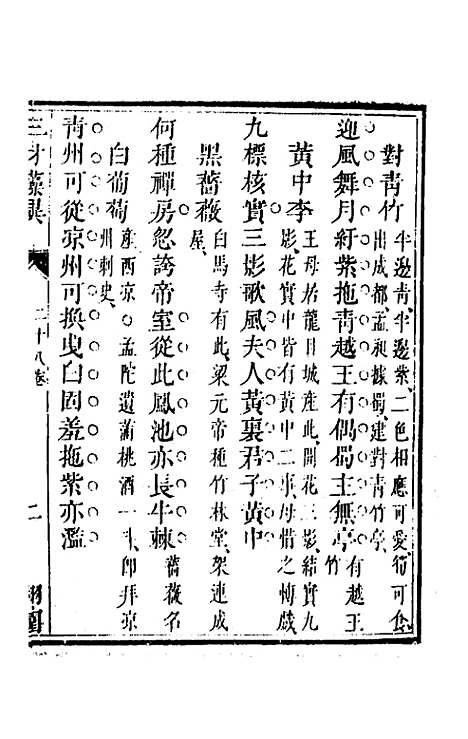 對青竹 半邊青半邊紫二色相應可愛筍可食
出成都孟昶據蜀建對青竹亭
迎風舞月紅紫拖青越王有偶蜀主無亭 有越王
竹
黃中李 王母居龍月城産此開花三影結實九
影花實中皆有黃中二事母惜之
九標核實三影歌風夫人黃裏君子黃中
黑薔薇 白馬寺有此梁元帝種竹林堂架連成
屋
何種禪房忽誇帝室從此鳳池亦長牛棘 薔薇名
白葡萄 産西涼孟陀遺蒲桃酒一斗即拜凉
州刺史
青州可從凉州可換曳白固羞拖紫亦濫
三才藻異
二十八卷
二